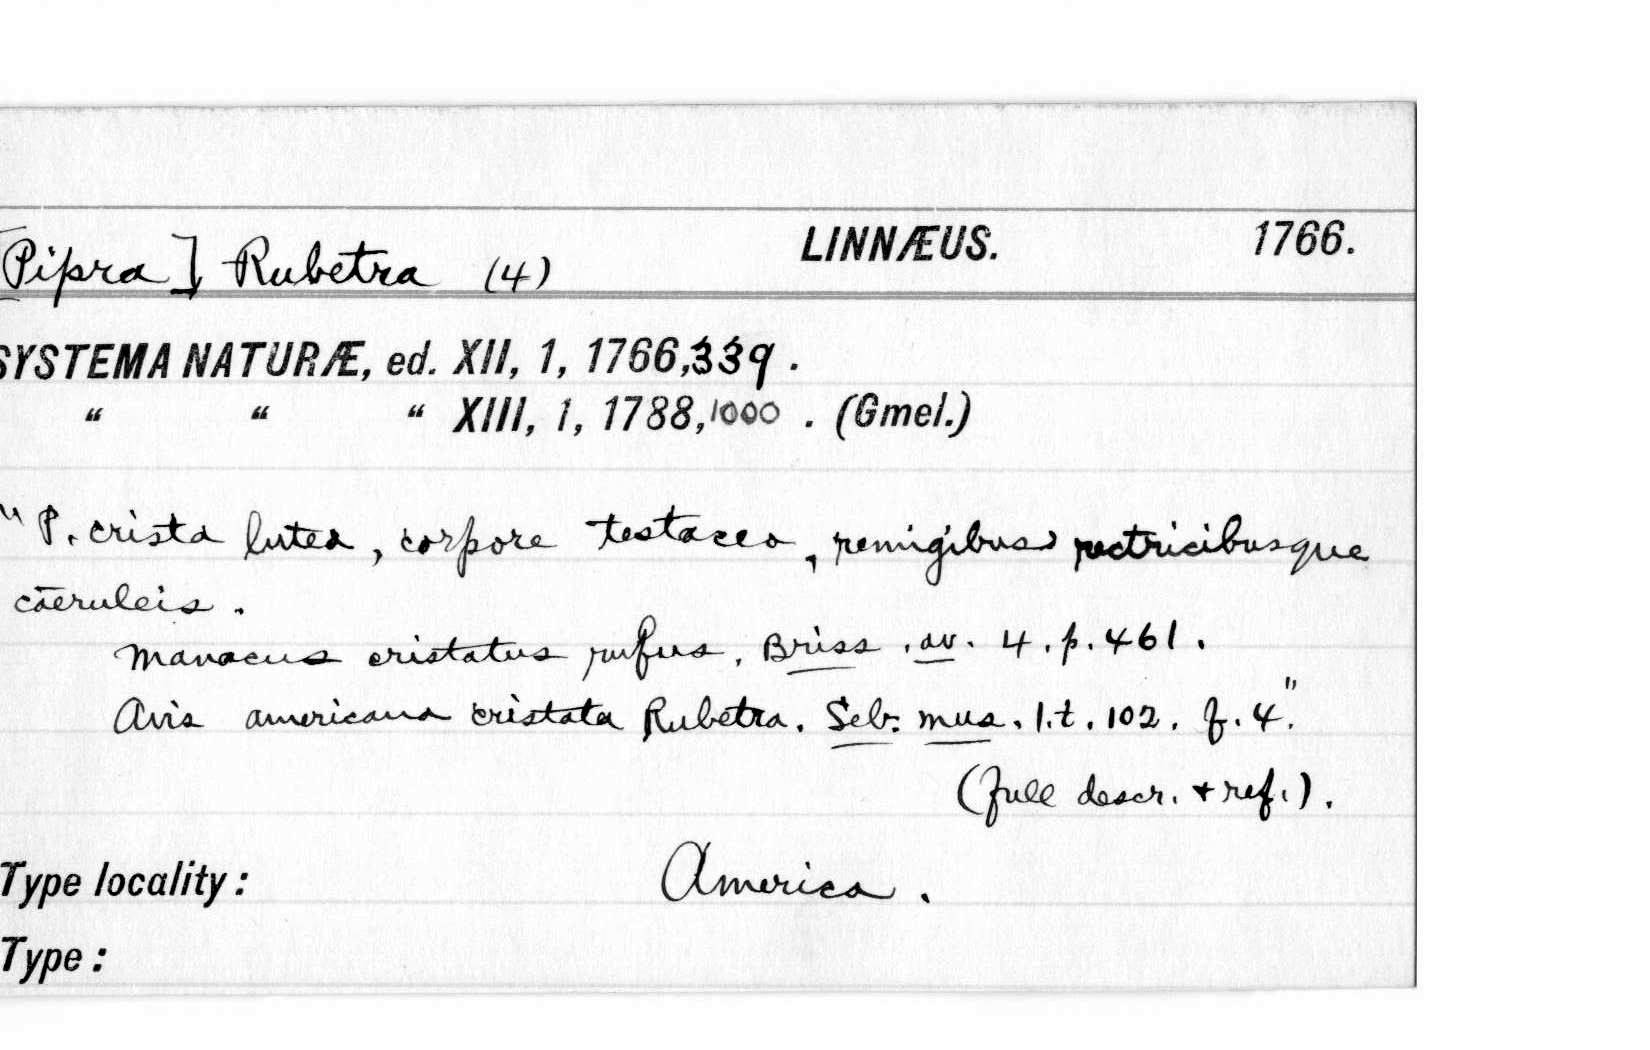 [Pipra] Rubetra (4) LINNÆUS. 1766.
SYSTEMA NATURÆ, ed. XII, 1, 1766, 339.
“ “ “ XIII, 1, 1788, 1000. (Gmel.)
"P. crista lutea, corpore testaceo, remigibus rectricibusque
cœruleis.
Manacus cristatus rufus, Briss. av. 4. p. 461.
Avis americana cristata Rubetra. Seb. mus. 1. t. 102. f. 4."
(full descr. + ref.).
Type locality: America.
Type: